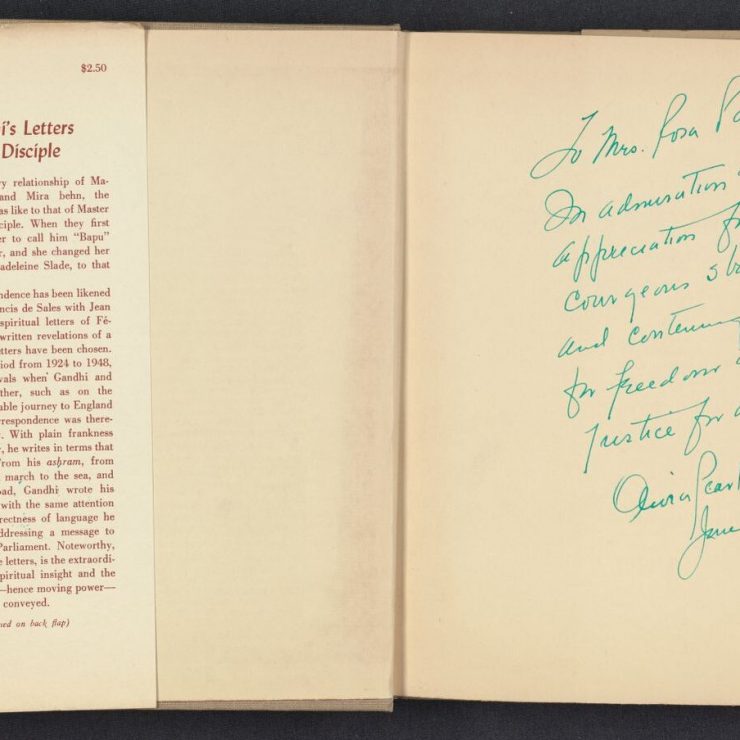 $2.50
i's Letters
Disciple
ry relationship of Ma-
and Mira behn, the
as like to that of Master
ciple. When they first
er to call him "Bapu"
r, and she changed her
adeleine Slade, to that
ndence has been likened
ncis de Sales with Jean
spiritual letters of Fé-
written revelations of a
tters have been chosen.
iod from 1924 to 1948,
vals when Gandhi and
ther, such as on the
able journey to England
rrespondence was there-
. With plain frankness
r, he writes in terms that
From his ashram, from
march to the sea, and
oad, Gandhi wrote his
with the same attention
rectness of language he
ddressing a message to
Parliament. Noteworthy,
e letters, is the extraordi-
piritual insight and the
—hence moving power—
conveyed.
ed on back flap)
To Mrs. Rosa Pa
In admiration
appreciation fo
courgeous st
and continuing
for freedom
Justice for a
June